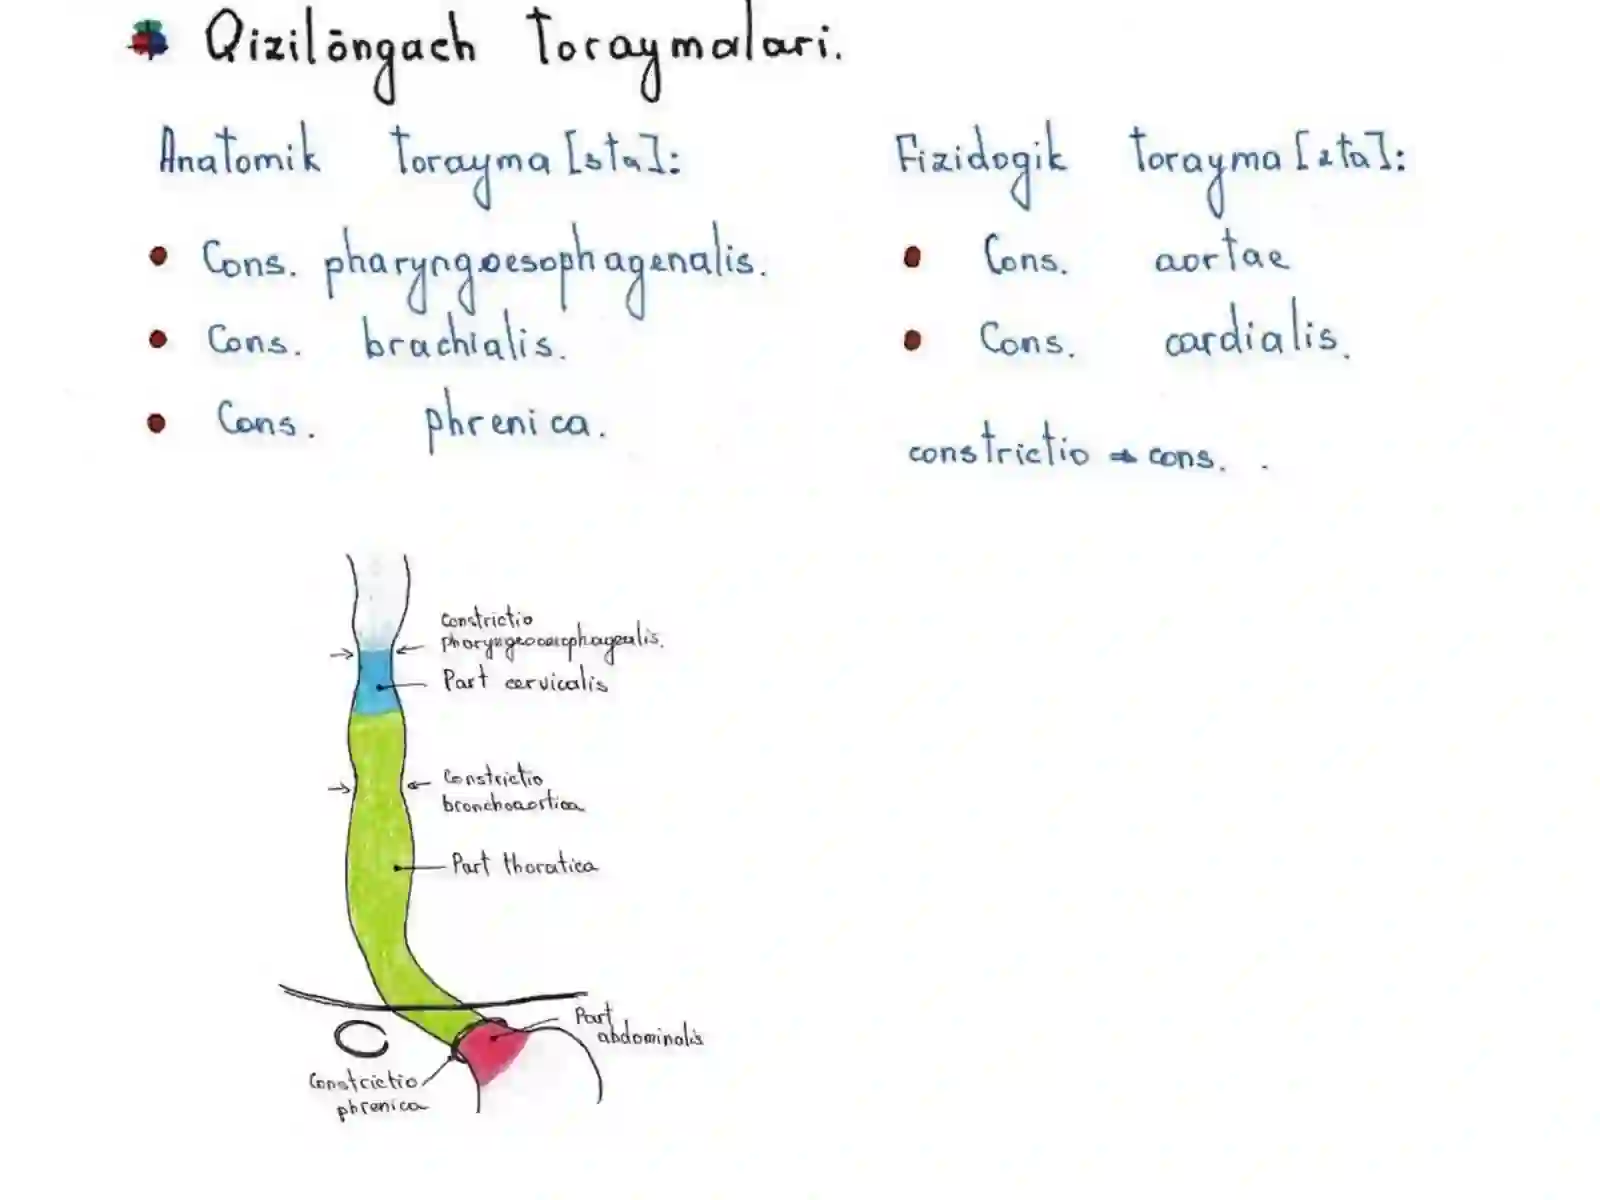 Qizilōngach toraymalari.
Anatomik torayma [3ta]:
• Cons. pharyngoesophagenalis.
• Cons. brachialis.
• Cons. phrenica.
Fizidogik torayma [2ta]:
• Cons. aortae
• Cons. cardialis.
constrictio → cons. .
Constrictio
pharyngeooesophagealis.
Part cervicalis
Constrictio
bronchoaortica
Part thoratica
Part
abdominalis
Constrictio
phrenica